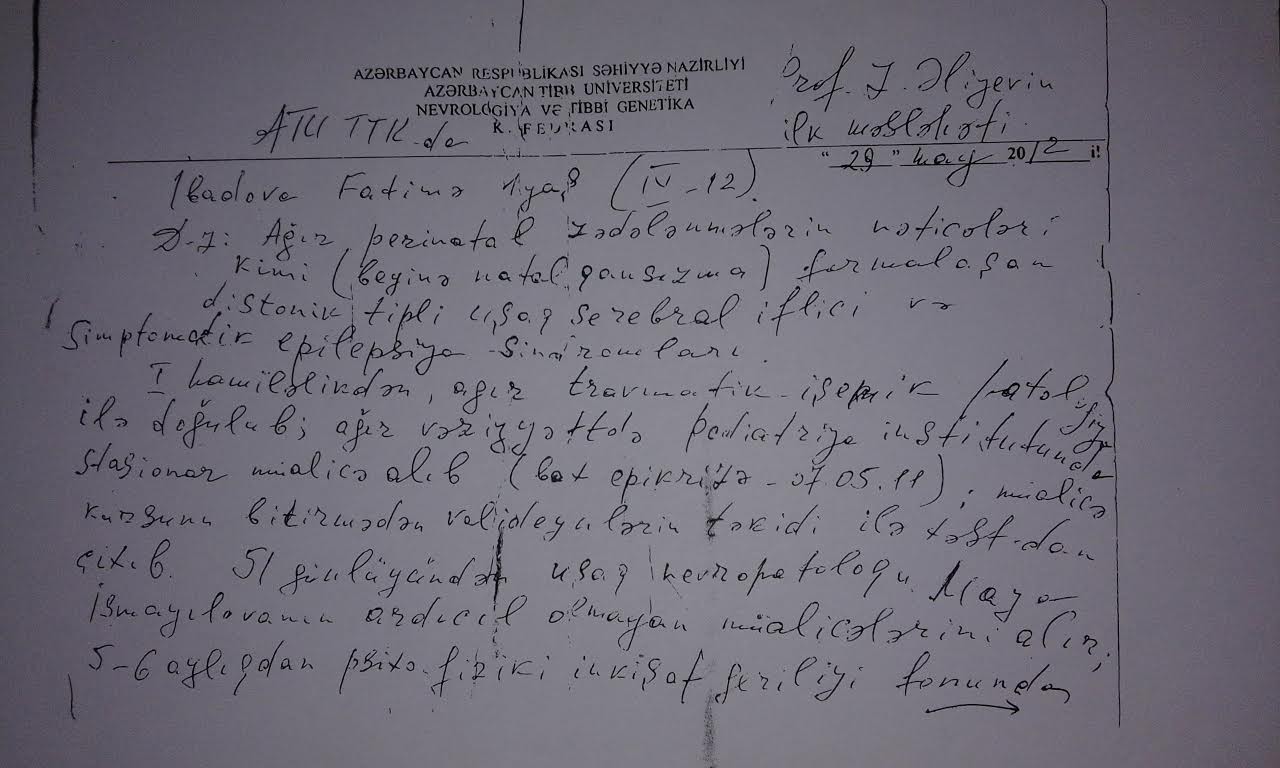 AZƏRBAYCAN RESPUBLİKASI SƏHİYYƏ NAZİRLİYİ
AZƏRBAYCAN TİBB UNİVERSİTETİ
NEVROLOGİYA VƏ TİBBİ GENETİKA
K. FEDRASI
ATU TTK-da
Prof. Z. Əliyevin
ilk məsləhəti
" 29 " may 2012 i!
İbadova Fatimə (IV-12)
D-z: Ağır perinatal zədələnmələrin nəticələri
kimi (beyinə natal qansızma) formalaşan
distonik tipli uşaq serebral iflici və
simptomatik epilepsiya sindromları.
I hamiləlikdən, ağır travmatik-işemik patologiya
ilə doğulub; ağır vəziyyəttdə pediatriya institutunda
stasionar müalicə alıb (bax epikriza - 07.05.11); müalicə
kursunu bitirmədən valideynlərin təkidi ilə xəst-dan
çıxıb. 51 günlüyündən uşaq nevropatoloqu Maya
İsmayılovanın ardıcıl olmayan müalicələrini alır;
5-6 aylıqdan psixo-fiziki inkişaf geriliyi fonunda